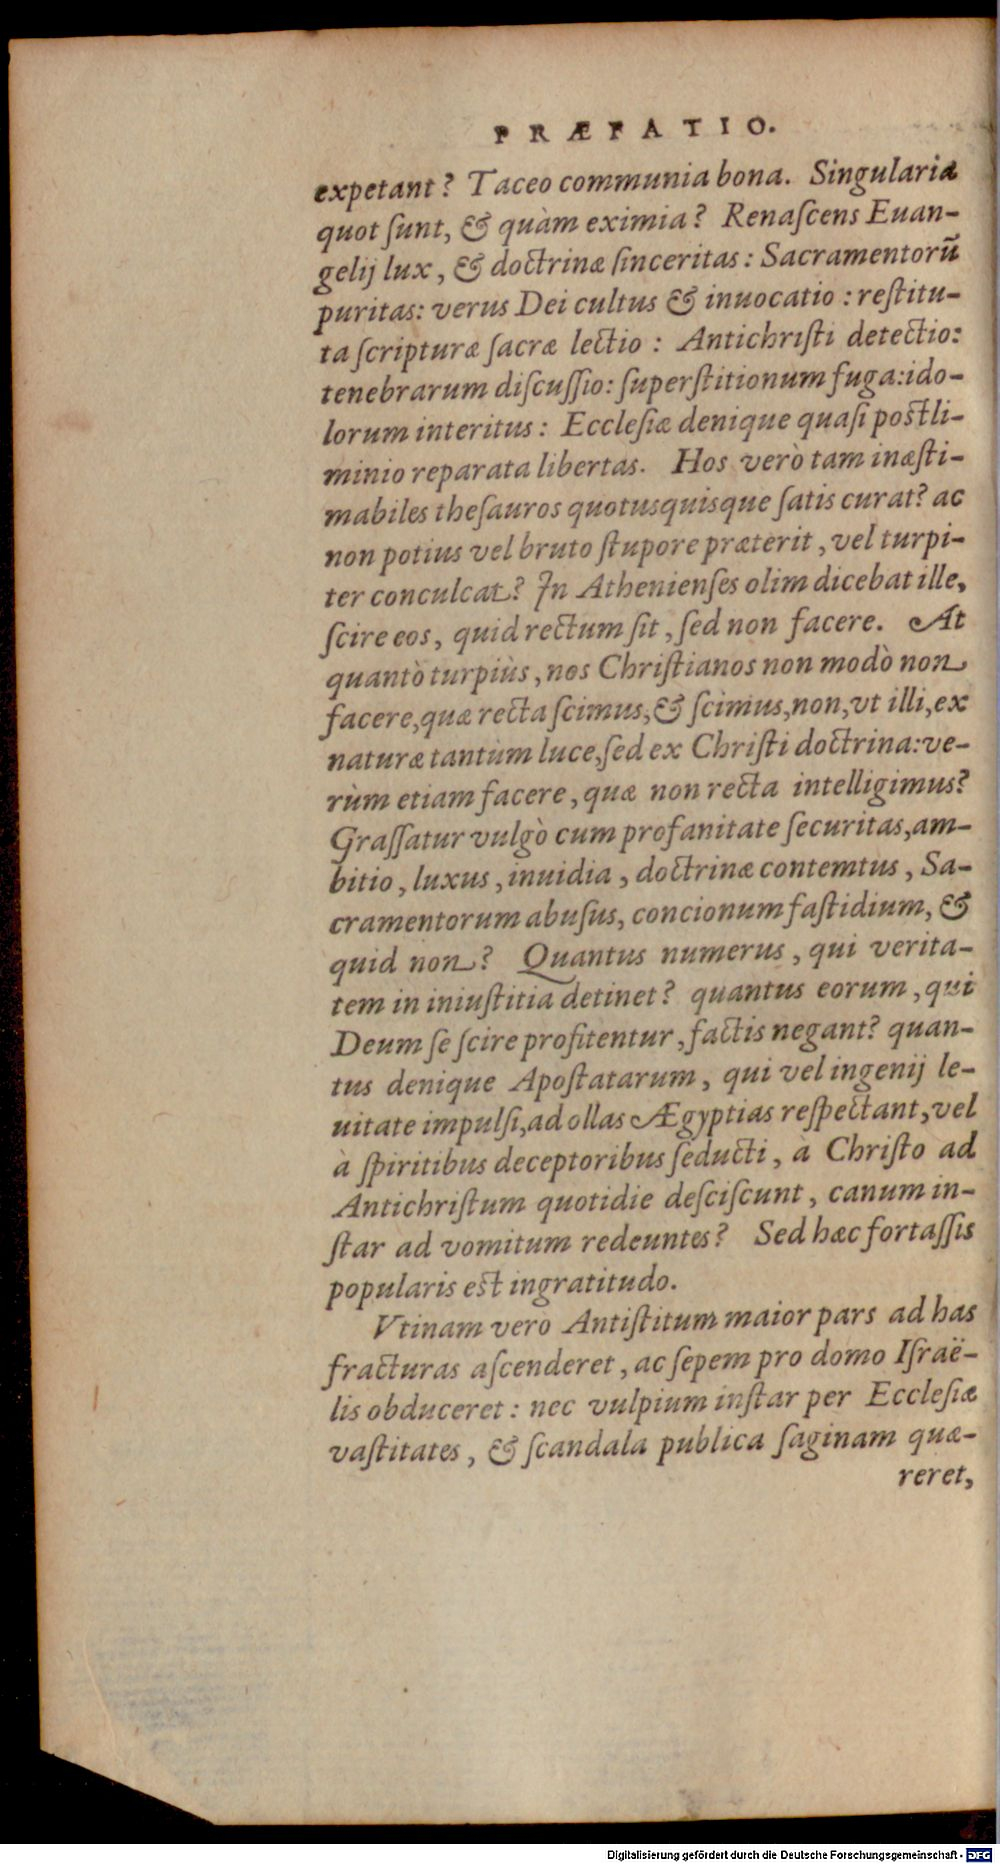 PRÆFATIO.
expetant? Taceo communia bona. Singularia
quot ſunt, & quàm eximia? Renaſcens Euan-
gelij lux, & doctrinæ ſinceritas: Sacramentorū
puritas: verus Dei cultus & inuocatio: reſtitu-
ta ſcripturæ ſacræ lectio: Antichriſti detectio:
tenebrarum diſcuſſio: ſuperſtitionum fuga: ido-
lorum interitus: Eccleſiæ denique quaſi poſtli-
minio reparata libertas. Hos verò tam inæſti-
mabiles theſauros quotusquisque ſatis curat? ac
non potius vel bruto ſtupore præterit, vel turpi-
ter conculcat? In Athenienſes olim dicebat ille,
ſcire eos, quid rectum ſit, ſed non facere. At
quantò turpiùs, nos Chriſtianos non modò non
facere, quæ recta ſcimus, & ſcimus, non, vt illi, ex
naturæ tantùm luce, ſed ex Chriſti doctrina: ve-
rùm etiam facere, quæ non recta intelligimus?
Graſſatur vulgò cum profanitate ſecuritas, am-
bitio, luxus, inuidia, doctrinæ contemtus, Sa-
cramentorum abuſus, concionum faſtidium, &
quid non? Quantus numerus, qui verita-
tem in iniuſtitia detinet? quantus eorum, qui
Deum ſe ſcire profitentur, factis negant? quan-
tus denique Apoſtatarum, qui vel ingenij le-
uitate impulſi, ad ollas Ægyptias reſpectant, vel
à ſpiritibus deceptoribus ſeducti, à Chriſto ad
Antichriſtum quotidie deſciſcunt, canum in-
ſtar ad vomitum redeuntes? Sed hæc fortaſſis
popularis eſt ingratitudo.
Vtinam vero Antiſtitum maior pars ad has
fracturas aſcenderet, ac ſepem pro domo Iſraë-
lis obduceret: nec vulpium inſtar per Eccleſiæ
vaſtitates, & ſcandala publica ſaginam quæ-
reret,
Digitalisierung gefördert durch die Deutsche Forschungsgemeinschaft - DFG